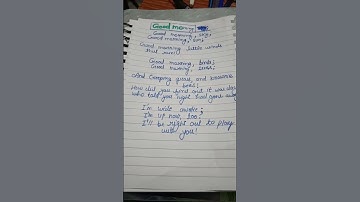 Good morning
Good morning, sky;
Good morning, sun;
Good morning little winds
that run!
Good morning, birds;
Good morning, trees;
And creeping grass, and brownie
bees!
How did you find out it was day
who told you night had gone away
I'm wide awake;
I'm up now, too;
I'll be right out to play
with you!